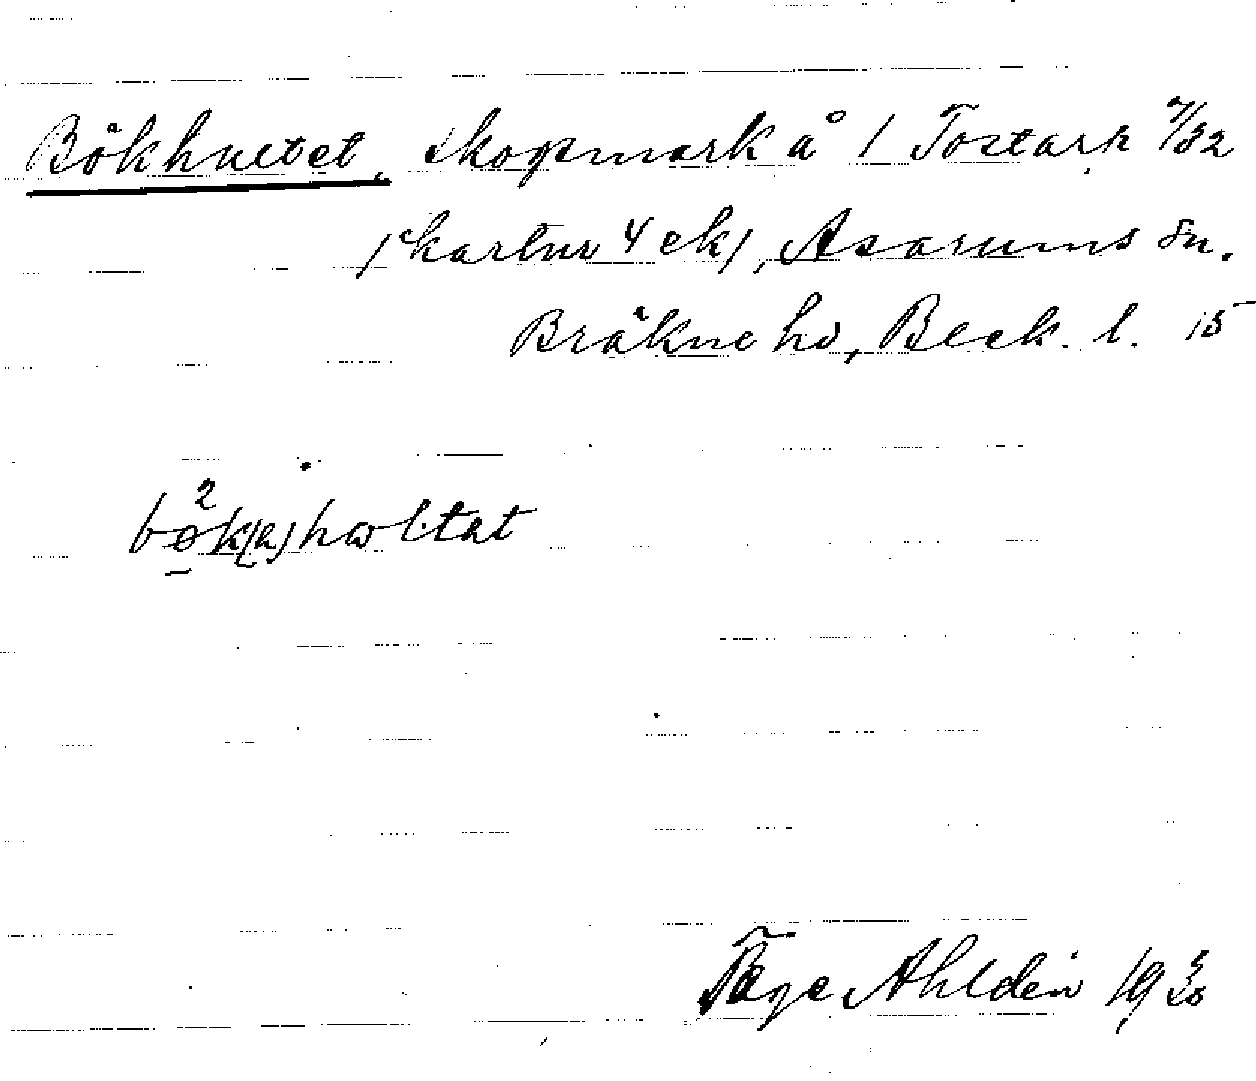 Bökhultet, skogsmark å 1 Tostarp 7/32
(kartnr 4 ek), Asarums sn.
Bräkne hd, Blek. l. 15
2
bök(a)hultat
Tage Ahldén 19